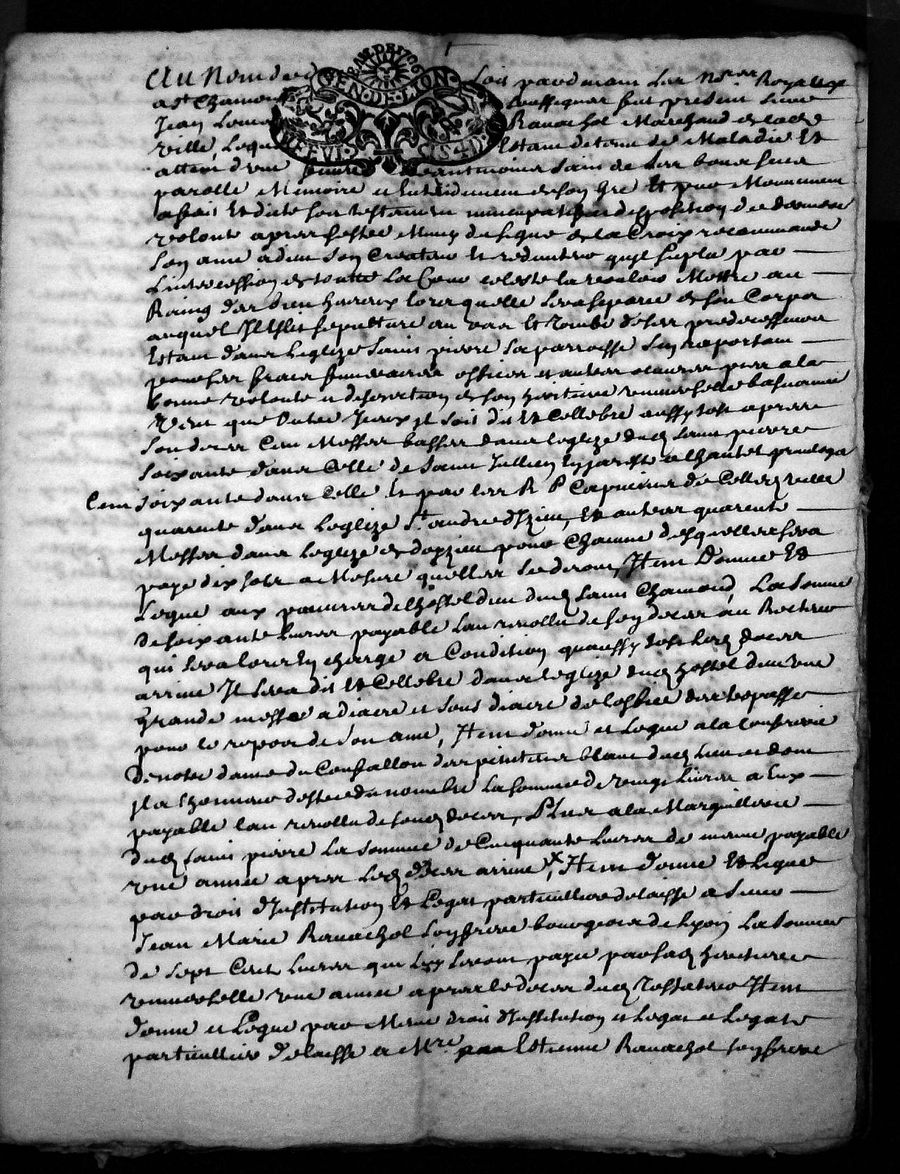 Au Nom de Dieu soit pardevant les Nres Royaux
a St Chamond soussignes fut present sieur
Jean Louis Ravachol Marchand de lade
ville, Lequel Estant detenu de Maladie Et
atteint d'une fievre neantmoins sain de ses bons sens
parolle Memoire et Entendement de son gre Et pur Mouvement
a fait Et dicte son testament nuncupatif et disposition de derniere
volonte apres s'estre Muny du signe de la Croix recommande
son ame a dieu son Createur Et redempteur quil suplie par
Lintercession de toutte La Cour celeste la vouloir Mettre au
Rang des bien heureux lors quelle sera separee de son Corps
auquel Il Eslit sepulture au vas Et tombe de ses predecesseurs
Estant dans Leglize Saint pierre sa parroisse sen raportant
pour ses fraix funeraires offices et autres oeuvres pies a la
bonne volonte et discretion de son heritiere universelle bas nommee
Veut que Outre Iceux il soit dit Et Cellebre aussy tost apres
son deces Cent Messes basses dans leglize dud saint pierre
soixante dans Celle de Saint Jullien
Cent soixante dans Celle Et par les R P Capucins de Celle ville
quarente dans Leglize St andre d'Izieu, Et autres quarente
Messes dans Leglize de doizieu pour Chacune desquelles sera
paye dix sols a Mesure quelles se diront, Item Donne Et
Legue aux pauvres de lhostel dieu dud saint Chamond, La somme
de soixante Livres payable Lan revollu de son deces au Recteur
qui sera lors En charge a Condition quaussy tost led deces
arrive Il sera dit Et Cellebre dans leglize dud hostel dieu une
Grande messe a diacre et sous diacre de loffice des trepasses
pour le repos de son ame, Item donne et Legue a la Confrerie
de notre dame du Confallon des penitents blancs dud Lieu et dont
il a lhonneur destre du nombre La somme de vingt Livres a Eux
payable lan revollu de son d deces, Plus a la Marguillerie
dud saint pierre La somme de Cinquante Livres de meme payable
une annee apres Led deces arrive, Item donne Et Legue
par droit d'Institution Et Legat particullier delaisse a sieur
Jean Marie Ravachol son frere bourgeois de Lyon La somme
de sept Cent Livres qui luy seront paye par sad heritiere
universelle une annee apres le deces dud Testateur Item
donne et Legue par Meme droit d'Institution et Legat
particullier delaisse a Mre Estienne Ravachol son frere
GEN. DE LION